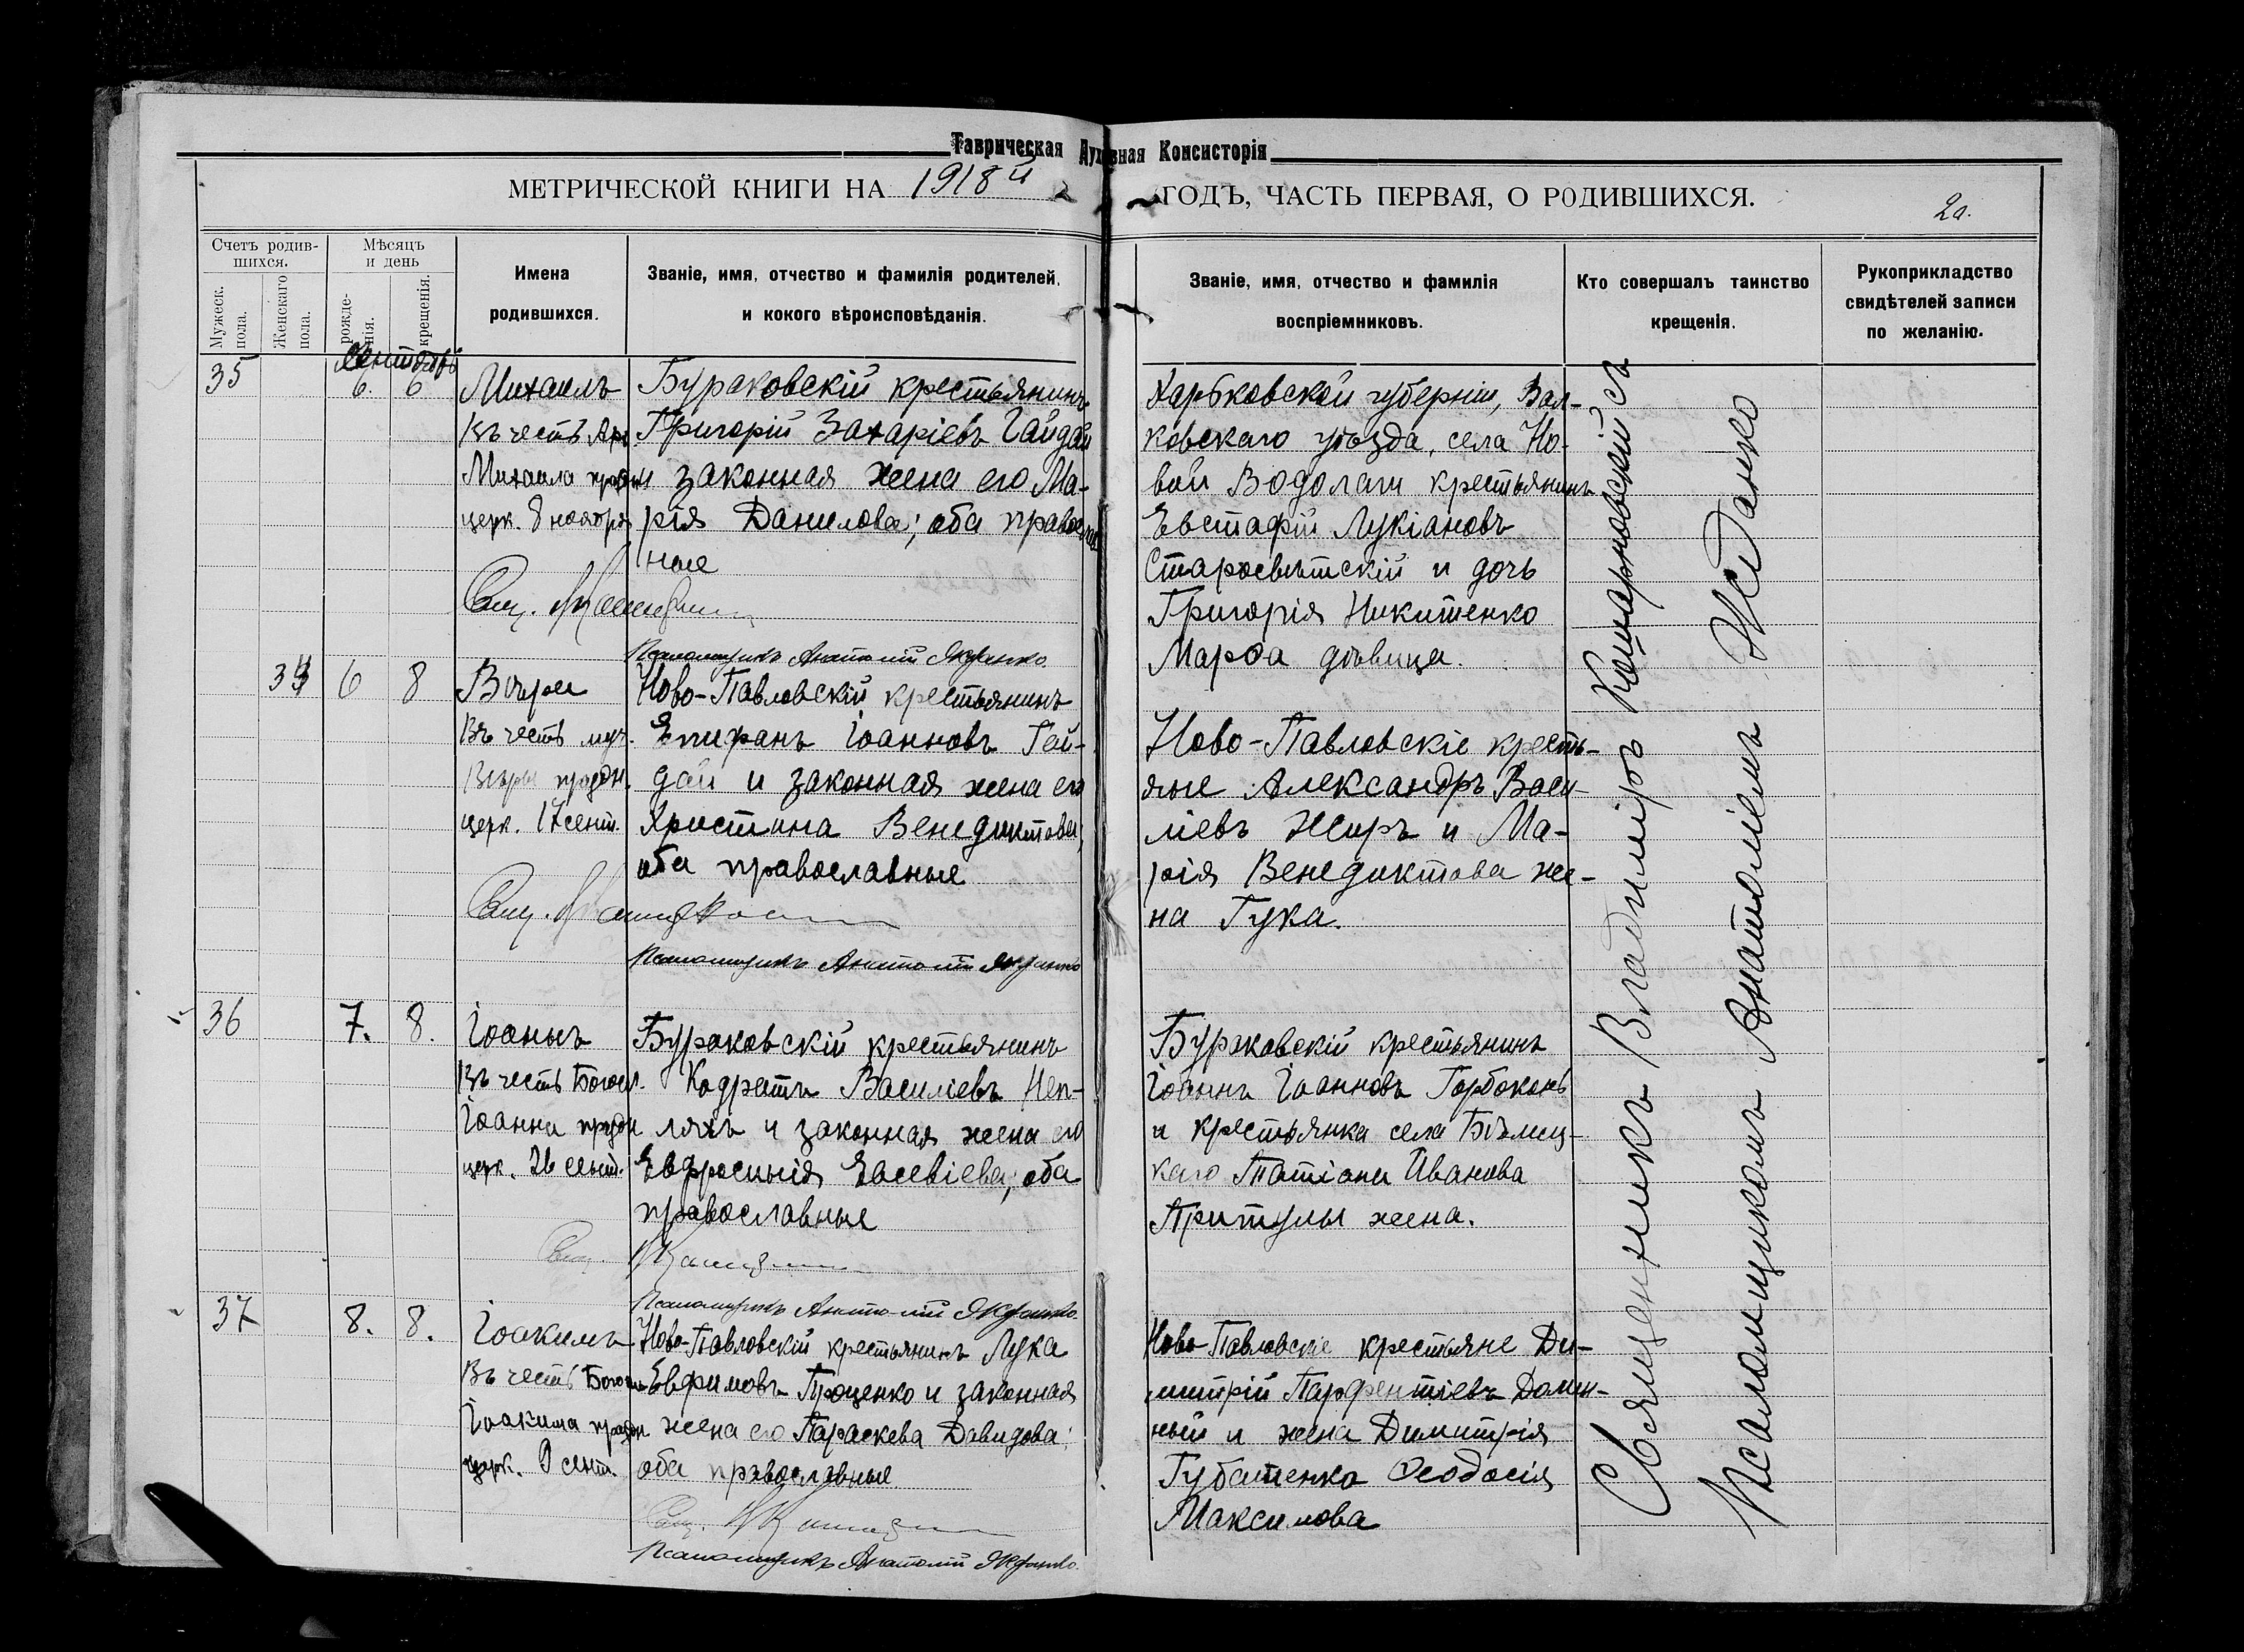 Таврическая Духовная Консисторія
МЕТРИЧЕСКОЙ КНИГИ НА 1918й ГОДЪ, ЧАСТЬ ПЕРВАЯ, О РОДИВШИХСЯ.
Счетъ родив-
шихся.
Мужеск.
пола.
Женскаго
пола.
Мѣсяцъ
и день
рожде-
нія.
крещенія.
Имена
родившихся.
Званіе, имя, отчество и фамилія родителей,
и кокого вѣроисповѣданія.
Званіе, имя, отчество и фамилія
воспріемниковъ.
Кто совершалъ таинство
крещенія.
Рукоприкладство
свидѣтелей записи
по желанію.
Сентябрь
35
6. 6
Михаилъ
Въ честь Арх.
Михаила праздн.
церк. 8 ноября
Бураковскій крестьянинъ
Григорій Захаріевъ Гайдай
и законная жена его Ма-
рія Данилова; оба православ-
ные
Харьковской губерніи, Вал-
ковскаго уѣзда, села Но-
вой Водолаги крестьянинъ
Евстафій Лукіановъ
Старосвѣтскій и дочь
Григорія Никитенко
Марѳа дѣвица.
Свящ.
Псаломщикъ Анатолій
6 8
Вѣра
Въ честь муч.
Вѣры праздн.
церк. 17 сент.
Ново-Павловскій крестьянинъ
Епифанъ Іоанновъ Гай-
дай и законная жена его
Христина Венедиктова,
оба православные
Ново-Павловскіе кресть-
яне Александръ Васи-
ліевъ Жиръ и Ма-
рія Венедиктова же-
на Гука.
Свящ.
Псаломщикъ Анатолій
36
7. 8.
Іоаннъ
Въ честь Богосл.
Іоанна праздн
церк. 26 сент.
Бураковскій крестьянинъ
Кодратъ Василіевъ Неп-
ляхъ и законная жена его
Евфросинія Евсевіева; оба
православные
Бураковскій крестьянинъ
Іоаннъ Іоанновъ Горбоконь
и крестьянка села Бѣлиц-
каго Татіана Иванова
Притулы жена.
Свящ.
Псаломщикъ Анатолій
37
8. 8.
Іоакимъ
Въ честь
Іоакима праздн
церк. 9 сент.
Ново-Павловскій крестьянинъ Лука
Евфимовъ Проценко и законная
жена его Параскева Давидова;
оба православные
Ново-Павловскіе крестьяне Ди-
митрій Парфентіевъ
и жена Димитрія
Губатенка Ѳеодосія
Максимова
Свящ.
Псаломщикъ Анатолій
Священникъ Владиміръ Кошарновскій съ
Псаломщикомъ Анатоліемъ